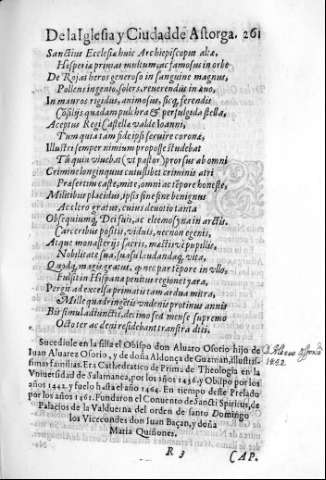 De la Iglesia y Ciudad de Astorga. 261
Sanctius Ecclesiæ huic Archiepiscopus alæ,
Hisperiæ primas multum, ac famosus in orbe
De Rojas heros generoso in sanguine magnus,
Pollens ingenio, solers, reuerendus in æuo,
In mauros rigidus, animosus, sicq, ferendis
Cõsilijs quedam pulchra & perfulgida stella,
Aceptus Regi Castellæ valde Ioanni,
Tum quia tam fide ipsi seruire coronæ,
Illustre semper nimium proposse studebat
Tũ quia viuebat (vt pastor) prorsus ab omni
Crimine longinquus cuiuslibet criminis atri
Præsertim caste, mite, omni ac tẽpore honeste,
Militibus placitus, ipsis sine fine benignus
Ac clero gratus, cuius deuotio tanta
Obsequiumq; Dei fuit, ac eleemosyna in arctis.
Carceribus positis, viduis, necnon egenis,
Atque monasterijs sacris, mæstis vt pupillis,
Nobilitate sua, sua sic laudandaq, vita,
Quodq, magis gratũ, quæc par tẽpore in vllo,
Fulsit in Hispana pentius regione tyara,
Pergit ad excelsa primatũ tam ardua mitra,
Mille quadringẽtis vndenis protinus annis
Bis simul adiunctis, decimo sed mense supremo
Octo ter ac deni residebant transfra dtii.
Sucediole en la silla el Obispo don Aluaro Osorio hijo de
Iuan Aluarez Osorio, y de doña Aldonça de Guzman, illustris-
simas familias. Era Cathedratico de Prima de Theologia en la
Vniuersidad de Salamanca, por los años 1436. y Obispo por los
años 1442. y fuelo hasta el año 1464. En tiempo deste Prelado
por los años 1461. Fundaron el Conuento de Sancti Spiritus, de
Palacios de la Valduerna del orden de santo Domingo
los Vicecondes don Iuan Baçan, y doña
Maria Quiñones.
R 3 CAP.